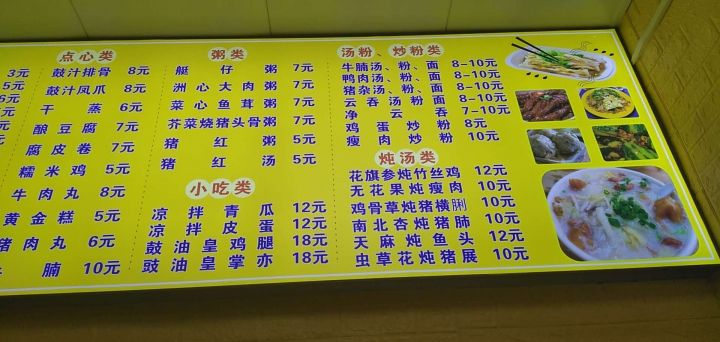 3元
5元
6元
点心类
鼓汁排骨 8元
鼓汁凤爪 8元
干蒸 6元
酿豆腐 7元
腐皮卷 7元
糯米鸡 5元
牛肉丸 8元
黄金糕 5元
猪肉丸 6元
腩 10元
粥类
艇仔粥 7元
洲心大肉粥 7元
菜心鱼茸粥 7元
芥菜烧猪头骨粥 7元
猪红粥 5元
猪红汤 5元
小吃类
凉拌青瓜 12元
凉拌皮蛋 12元
鼓油皇鸡腿 18元
豉油皇掌亦 18元
汤粉、炒粉类
牛腩汤、粉、面 8-10元
鸭肉汤、粉、面 8-10元
猪杂汤、粉、面 8-10元
云吞汤粉面 8-10元
净云吞 7-10元
鸡蛋炒粉 8元
瘦肉炒粉 10元
炖汤类
花旗参炖竹丝鸡 12元
无花果炖瘦肉 10元
鸡骨草炖猪横脷 10元
南北杏炖猪肺 10元
天麻炖鱼头 12元
虫草花炖猪展 10元